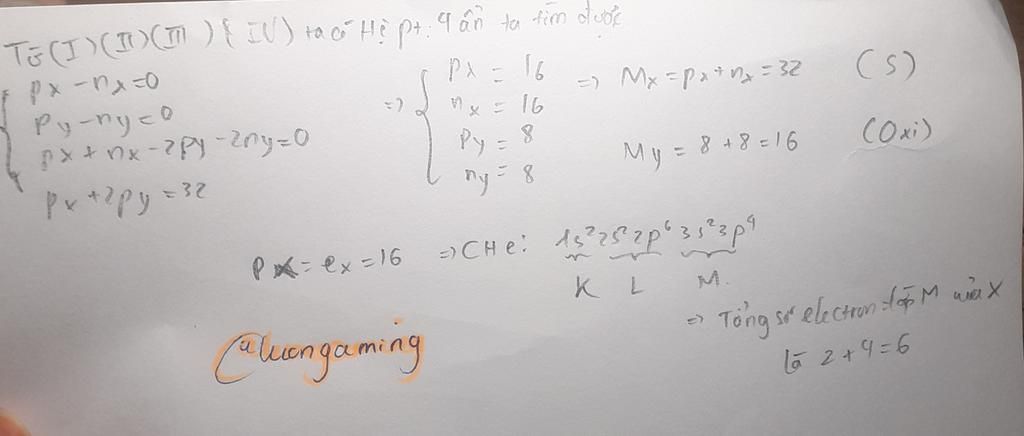 Từ (I) (II) (III) (IV) ta có Hệ pt: 4 ẩn ta tìm được
px - nx = 0
py - ny = 0
px + nx - 2py - 2ny = 0
px + 2py = 32
=> px = 16 => Mx = px + nx = 32 (S)
nx = 16
py = 8 My = 8 + 8 = 16 (Oxi)
ny = 8
px = ex = 16 => CHe: 1s² 2s² 2p⁶ 3s² 3p⁴
K L M
=> Tổng số electron lớp M của X
là 2 + 4 = 6
@luongaming